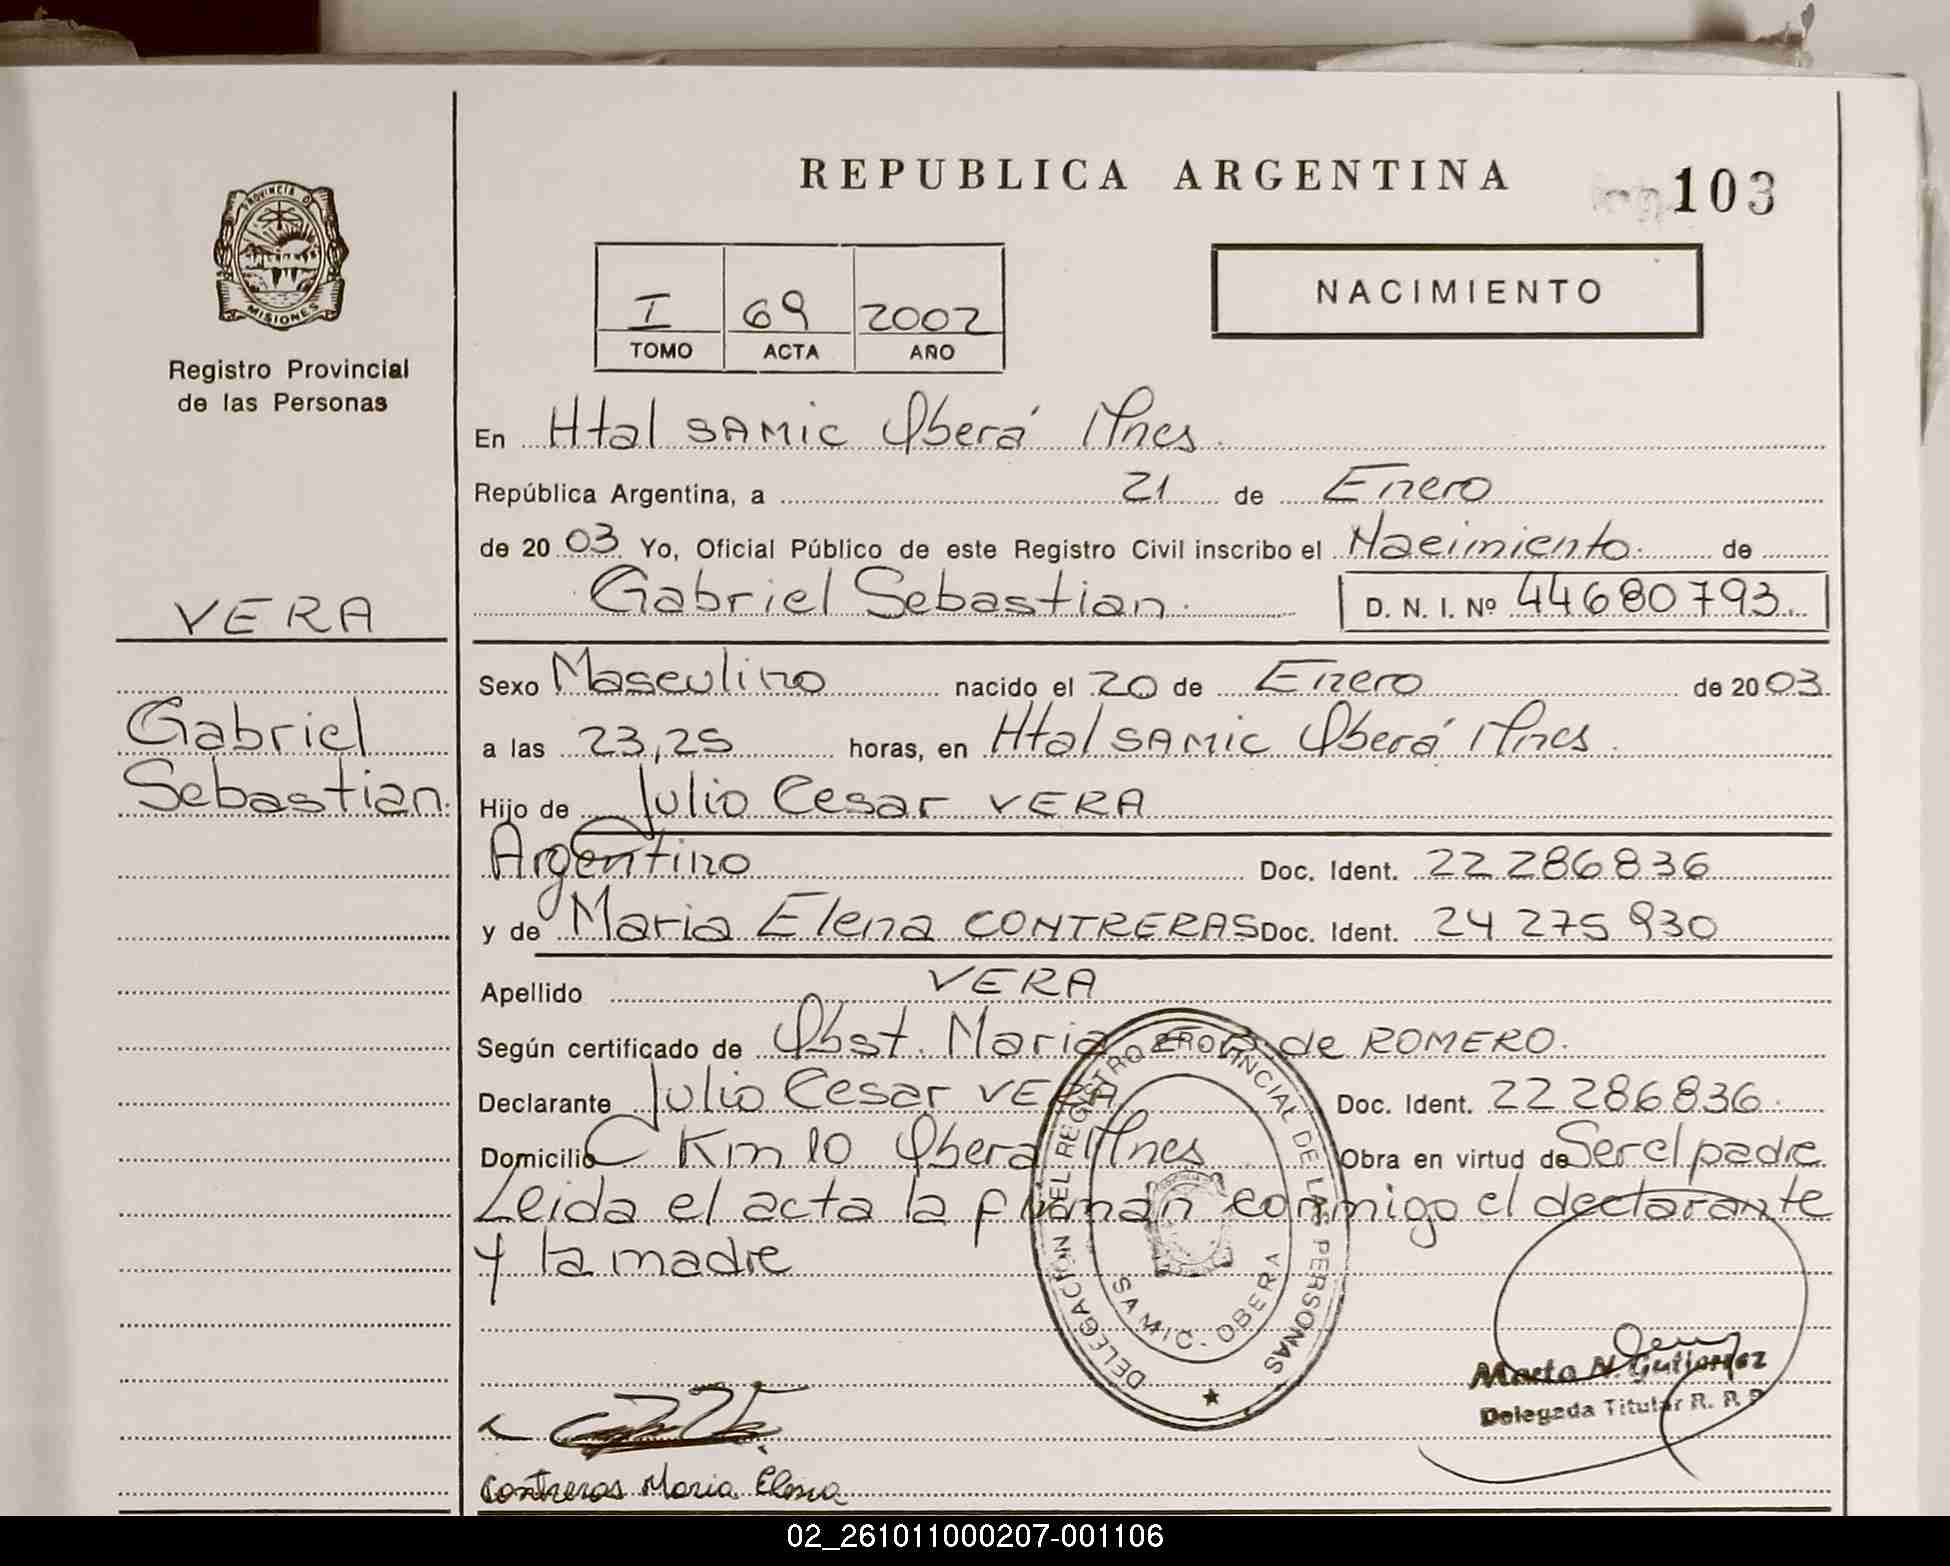 REPUBLICA ARGENTINA
103
PROVINCIA D
MISIONES
Registro Provincial
de las Personas
I 69 2002
TOMO ACTA AÑO
NACIMIENTO
En Htal SAMIC Oberá Mnes.
República Argentina, a 21 de Enero
de 20 03 Yo, Oficial Público de este Registro Civil inscribo el Nacimiento. de
Gabriel Sebastian. D. N. I. Nº 44680793
VERA
Sexo Masculino nacido el 20 de Enero de 20 03.
Gabriel
a las 23,25 horas, en Htal SAMIC Oberá Mnes.
Sebastian.
Hijo de Julio Cesar VERA
Argentino Doc. Ident. 22 286836
y de Maria Elena CONTRERAS Doc. Ident. 24 275 930
Apellido VERA
Según certificado de Obst. Maria de ROMERO.
Declarante Julio Cesar VERA Doc. Ident. 22 286836.
Domicilio C Km 10 Oberá Mnes Obra en virtud de Ser el padre
Leida el acta la firman conmigo el declarante
y la madre
DELEGACIÓN DEL REGISTRO PROVINCIAL DE LAS PERSONAS
SAMIC - OBERA
Marta N. Gutierrez
Delegada Titular R. P. P
Contreras Maria Elena
02_261011000207-001106